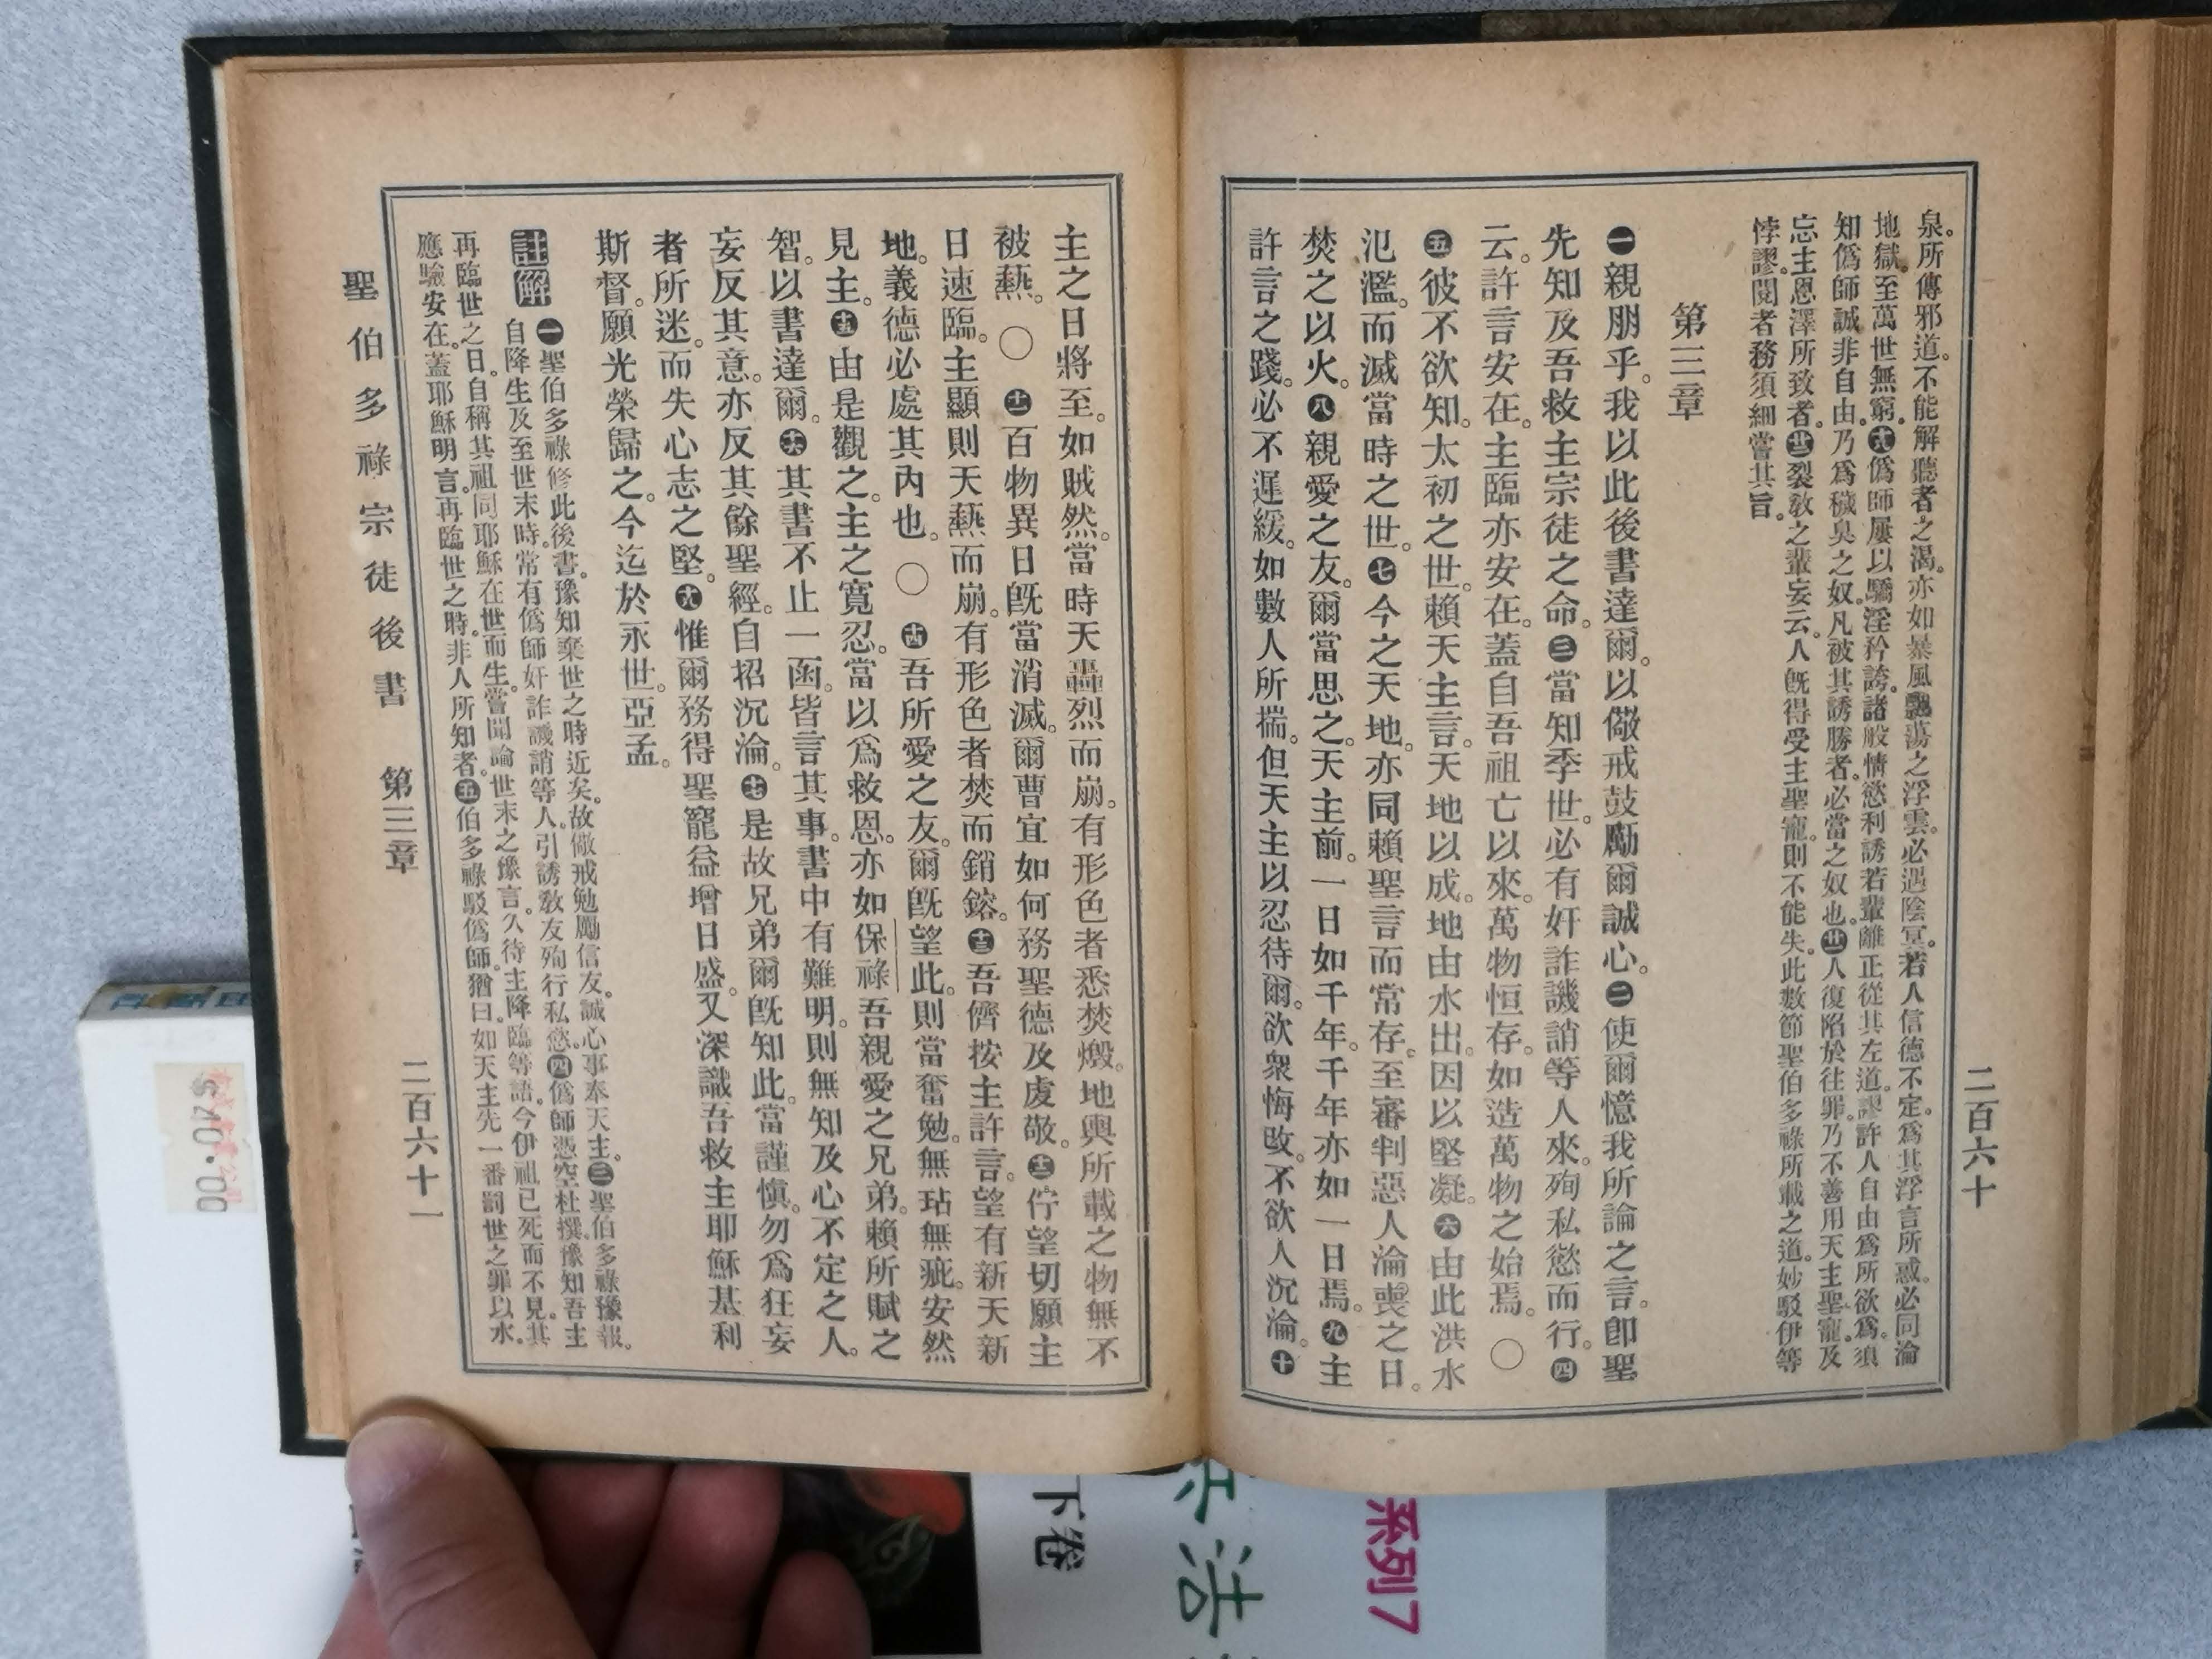 泉。所傳邪道。不能解聽者之渴。亦如暴風飄蕩之浮雲。必遇陰冥。若人信德不定。爲其浮言所惑。必同淪
地獄。至萬世無窮。十八僞師屢以驕淫矜誇。諸般情慾。利誘若輩離正從其左道。謬許人自由爲所欲爲。須
知僞師誠非自由。乃爲穢臭之奴。凡被其誘勝者。必當之奴也。廿人復陷於往罪。乃不善用天主聖寵。及
忘主恩澤所致者。廿一裂敎之輩妄云。人旣得受主聖寵。則不能失。此數節聖伯多祿所載之道。妙駁伊等
悖謬。閱者務須細嘗其旨。
第三章
一親朋乎。我以此後書達爾。以儆戒鼓勵爾誠心。二使爾憶我所論之言。卽聖
先知及吾救主宗徒之命。三當知季世。必有奸詐譏誚等人來。殉私慾而行。四
云。許言安在。主臨亦安在。蓋自吾祖亡以來。萬物恒存。如造萬物之始焉。〇
五彼不欲知。太初之世。賴天主言。天地以成。地由水出。因以堅凝。六由此洪水
氾濫。而滅當時之世。七今之天地。亦同賴聖言而常存。至審判惡人淪喪之日。
焚之以火。八親愛之友。爾當思之。天主前。一日如千年。千年亦如一日焉。九主
許言之踐。必不遲緩。如數人所揣。但天主以忍待爾。欲衆悔改。不欲人沉淪。十
二百六十
主之日將至。如賊然。當時天轟烈而崩。有形色者悉焚燬。地與所載之物無不
被爇。〇十一百物異日旣當消滅。爾曹宜如何務聖德及虔敬。十二佇望切願主
日速臨。主顯則天爇而崩。有形色者焚而銷鎔。十三吾儕按主許言。望有新天新
地。義德必處其內也。〇十四吾所愛之友。爾旣望此。則當奮勉。無玷無疵。安然
見主。十五由是觀之。主之寬忍。當以爲救恩。亦如保祿吾親愛之兄弟。賴所賦之
智。以書達爾。十六其書不止一函。皆言其事。書中有難明。則無知及心不定之人。
妄反其意。亦反其餘聖經。自招沉淪。十七是故兄弟爾旣知此。當謹愼。勿爲狂妄
者所迷。而失心志之堅。十八惟爾務得聖寵益增日盛。又深識吾救主耶穌基利
斯督。願光榮歸之。今迄於永世。亞孟。
註解 一聖伯多祿修此後書。豫知棄世之時近矣。故儆戒勉勵信友。誠心事奉天主。三聖伯多祿豫報。
自降生及至世末時。常有僞師奸詐譏誚等人。引誘敎友殉行私慾。四僞師憑空杜撰。豫知吾主
再臨世之日。自稱其祖同耶穌在世而生。嘗聞論世末之豫言。久待主降臨等語。今伊祖已死而不見。其
應驗安在。蓋耶穌明言。再臨世之時。非人所知者。五伯多祿駁僞師。猶曰。如天主先一番罰世之罪以水。
聖伯多祿宗徒後書 第三章
二百六十一
$40.00
下卷
系列7